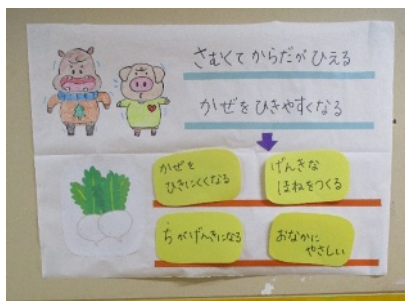 さむくて からだが ひえる
かぜを ひきやすくなる
かぜを
ひきにくくなる
げんきな
ほねをつくる
ちがげんきになる
おなかに
やさしい